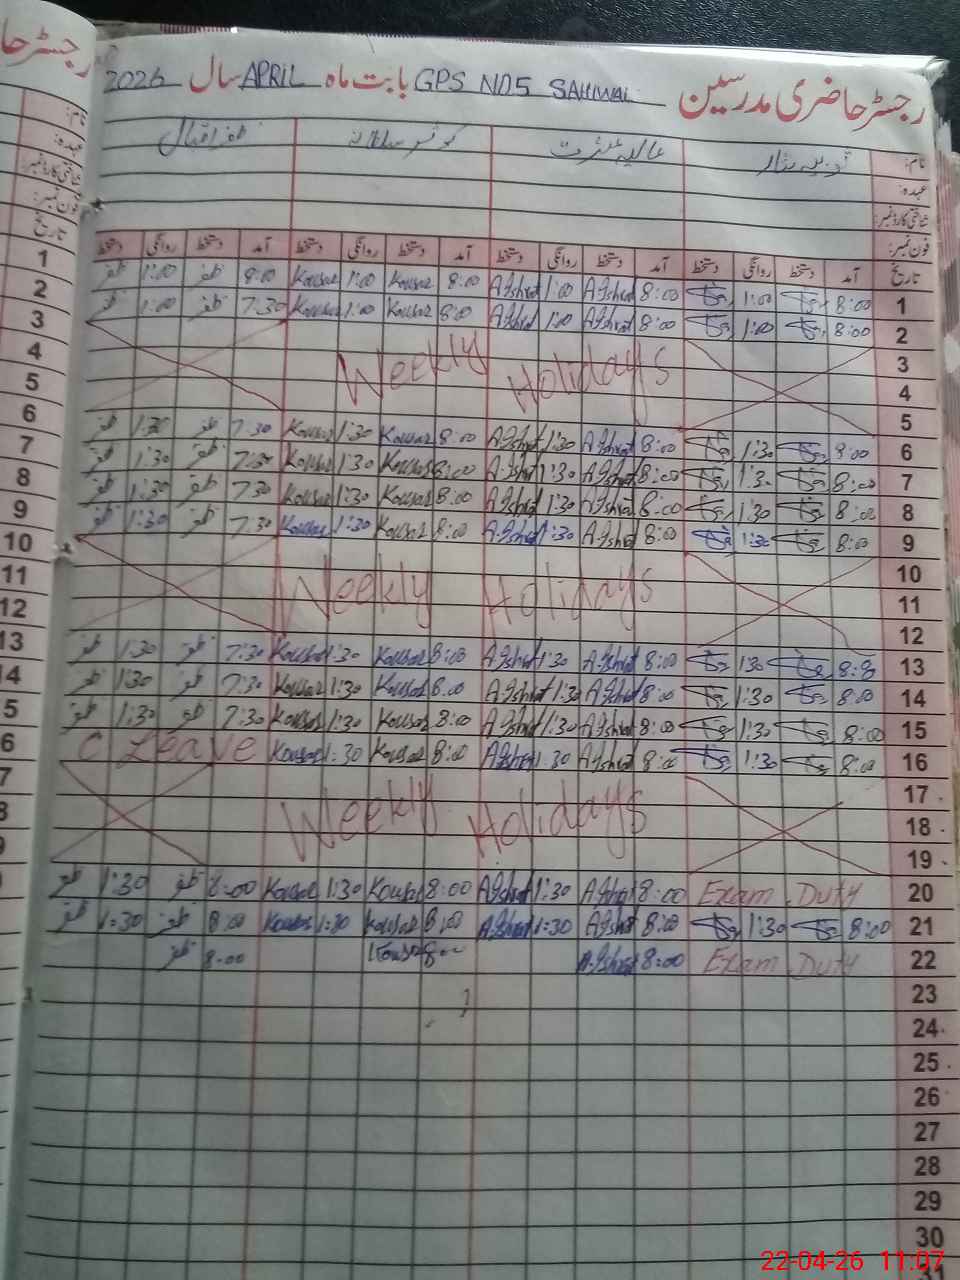 رجسٹر حاضری مدرسین GPS NO5 SAHIWAL بابت ماہ APRIL سال 2026
نام: عالیہ عشرت کوثر سلطانہ ظفر اقبال
عہدہ:
شناختی کارڈ نمبر:
فون نمبر:
تاریخ آمد دستخط روانگی دستخط آمد دستخط روانگی دستخط آمد دستخط روانگی دستخط آمد دستخط روانگی دستخط
1 8:00 1:00 8:00 A.Ishrat 1:00 A.Ishrat 8:00 Kousar 1:00 Kousar 8:00 ظفر 1:00 ظفر
2 8:00 1:00 8:00 A.Ishrat 1:00 A.Ishrat 8:00 Kousar 1:00 Kousar 7:30 ظفر 1:00 ظفر
3
4 Weekly Holidays
5
6 8:00 1:30 8:00 A.Ishrat 1:30 A.Ishrat 8:00 Kousar 1:30 Kousar 7:30 ظفر 1:30 ظفر
7 8:00 1:30 8:00 A.Ishrat 1:30 A.Ishrat 8:00 Kousar 1:30 Kousar 7:30 ظفر 1:30 ظفر
8 8:00 1:30 8:00 A.Ishrat 1:30 A.Ishrat 8:00 Kousar 1:30 Kousar 7:30 ظفر 1:30 ظفر
9 8:00 1:30 8:00 A.Ishrat 1:30 A.Ishrat 8:00 Kousar 1:30 Kousar 7:30 ظفر 1:30 ظفر
10
11 Weekly Holidays
12
13 8:00 1:30 8:00 A.Ishrat 1:30 A.Ishrat 8:00 Kousar 1:30 Kousar 7:30 ظفر 1:30 ظفر
14 8:00 1:30 8:00 A.Ishrat 1:30 A.Ishrat 8:00 Kousar 1:30 Kousar 7:30 ظفر 1:30 ظفر
15 8:00 1:30 8:00 A.Ishrat 1:30 A.Ishrat 8:00 Kousar 1:30 Kousar 7:30 ظفر 1:30 ظفر
16 8:00 1:30 8:00 A.Ishrat 1:30 A.Ishrat 8:00 Kousar 1:30 Kousar C Leave
17
18 Weekly Holidays
19
20 Exam Duty 8:00 A.Ishrat 1:30 A.Ishrat 8:00 Kousar 1:30 Kousar 8:00 ظفر 1:30 ظفر
21 8:00 1:30 8:00 A.Ishrat 1:30 A.Ishrat 8:00 Kousar 1:30 Kousar 8:00 ظفر 1:30 ظفر
22 Exam Duty 8:00 A.Ishrat 8:00 Kousar 8:00 ظفر
23
24
25
26
27
28
29
30
31
22-04-26 11:07